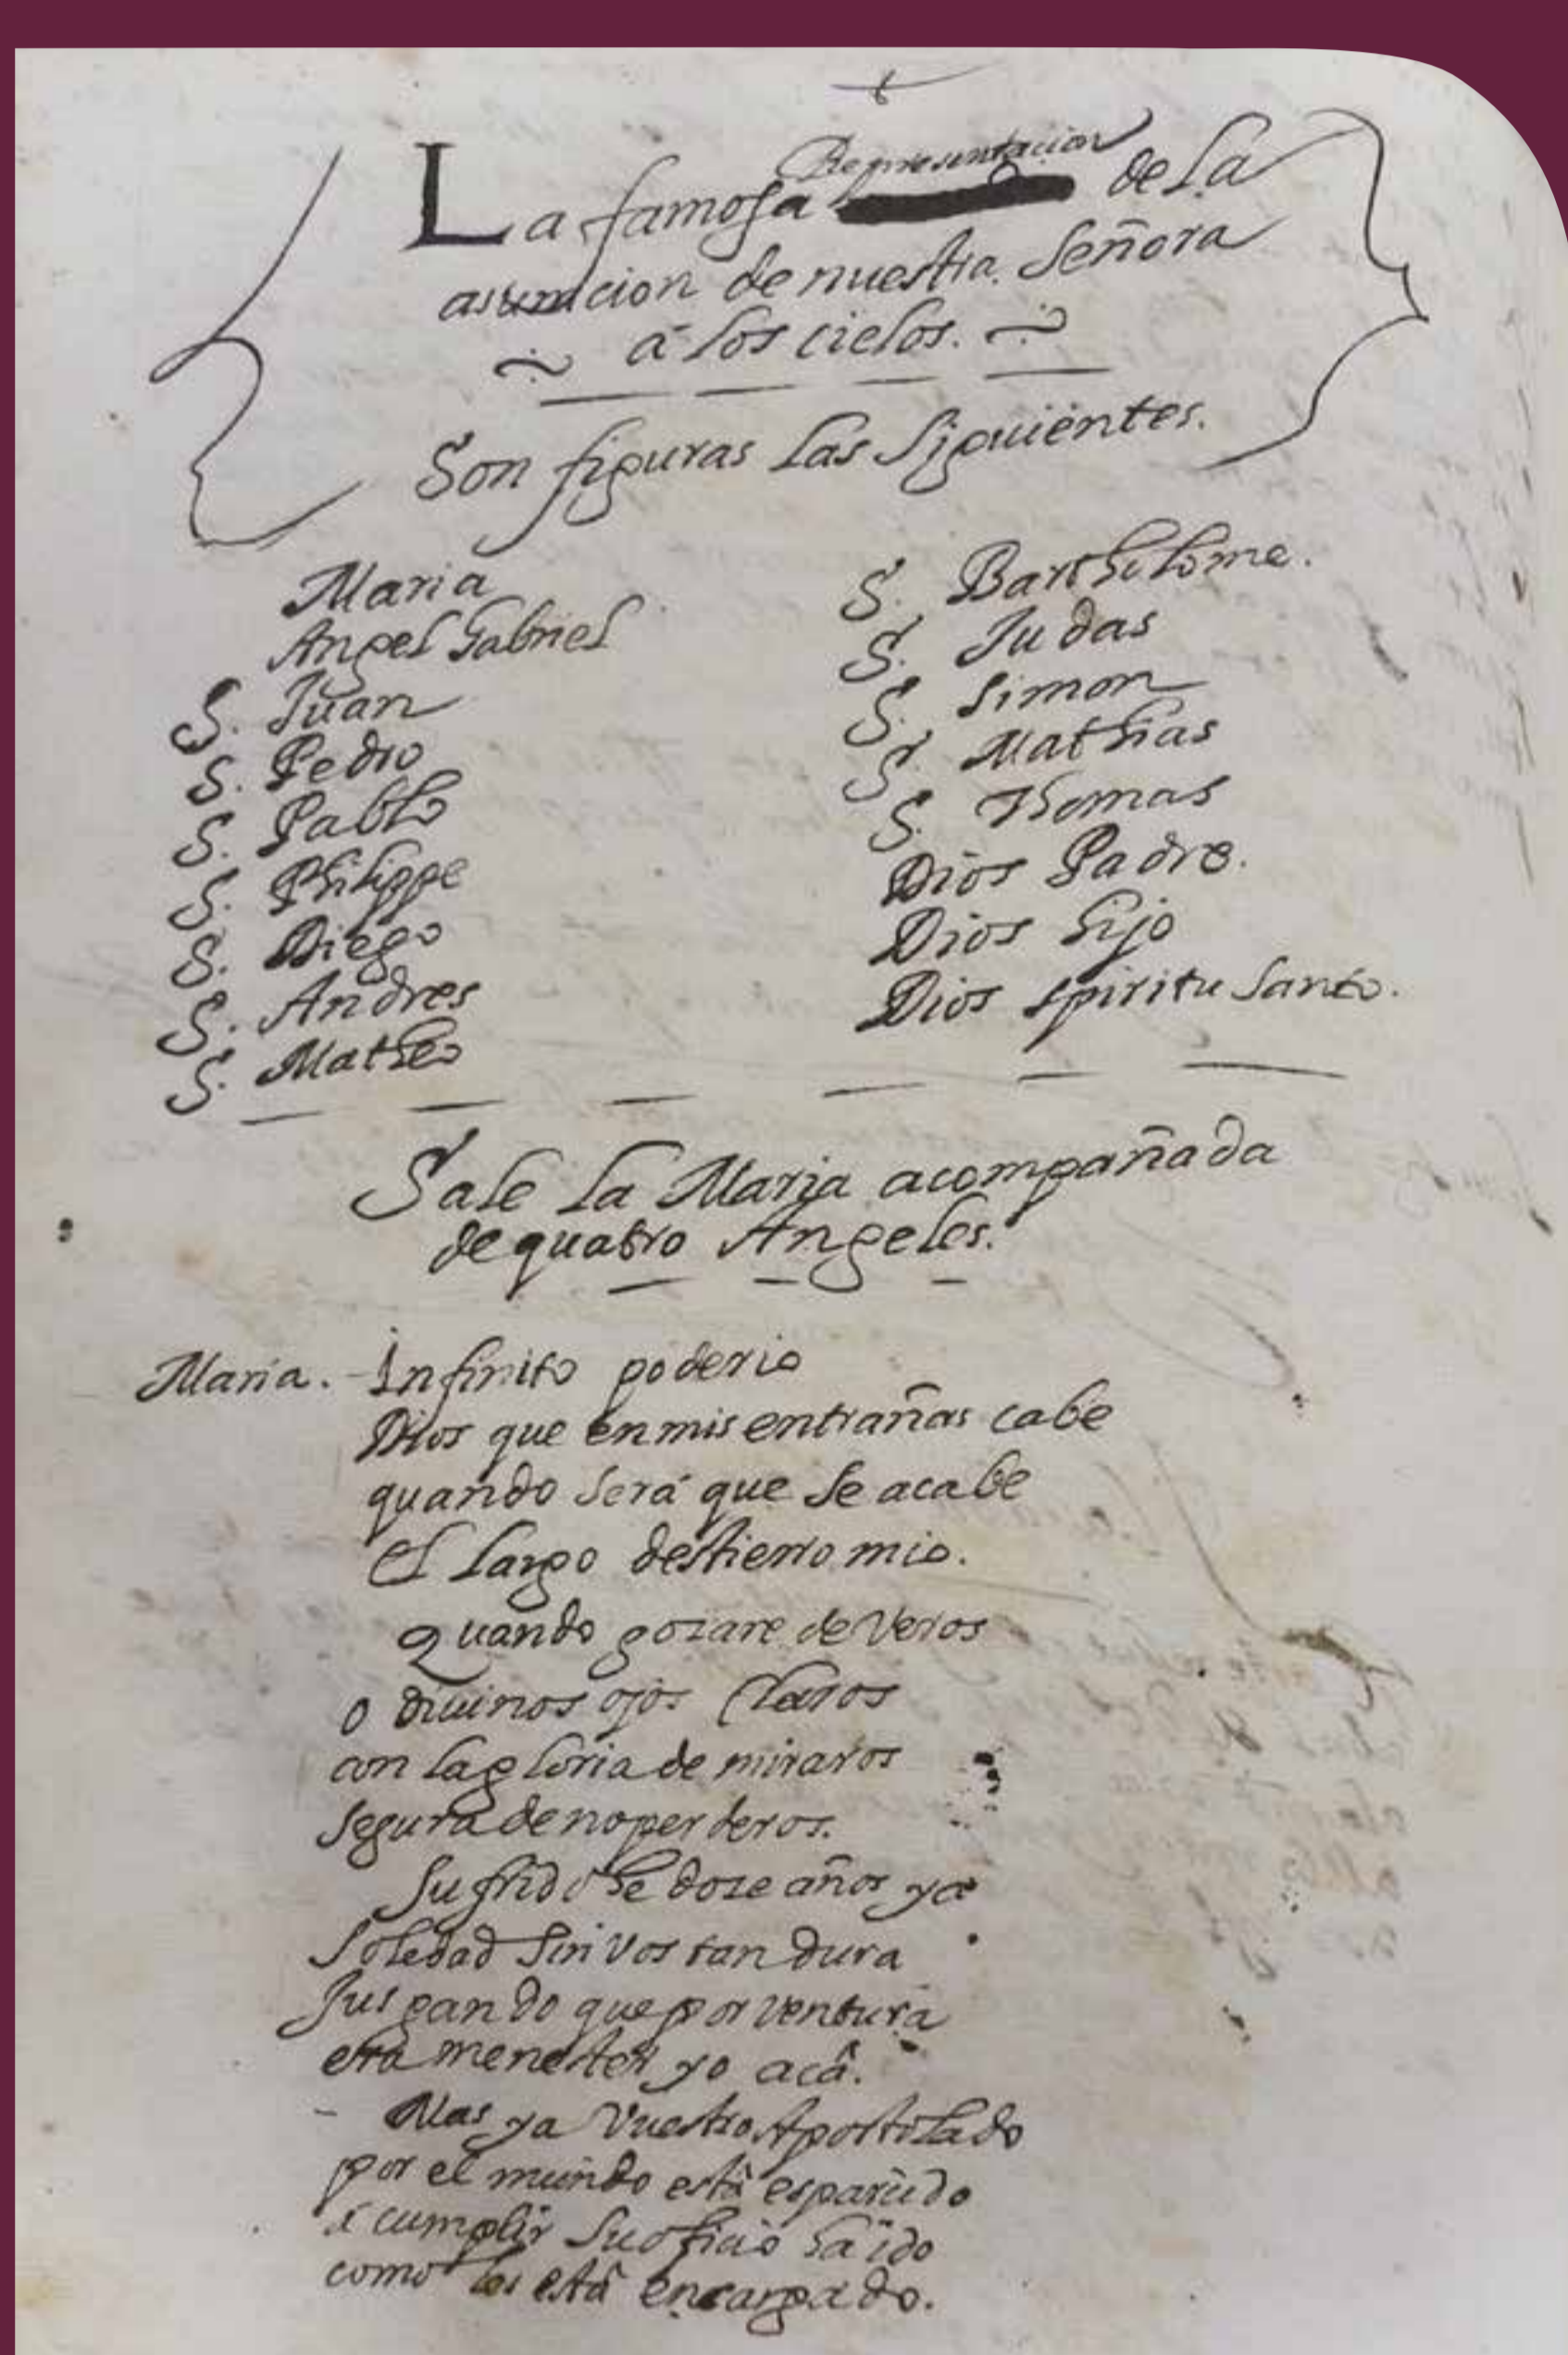 La famosa Representacion de la
asumcion de nuestra Señora
á los cielos.
Son figuras las siguientes.
Maria
Angel Gabriel
S. Juan
S. Pedro
S. Pablo
S. Philippe
S. Diego
S. Andres
S. Matheo
S. Bartholome.
S. Judas
S. Simon
S. Mathias
S. Thomas
Dios Padre.
Dios hijo
Dios spiritu santo.
Sale la Maria acompañada
de quatro Angeles.
Maria. Infinito poderio
Dios que en mis entrañas cabe
quando será que se acabe
el largo destierro mio.
Quando gozare de veros
o divinos ojos claros
con la gloria de miraros
segura de no perderos.
Sufrido he doze años ya
soledad sin vos tan dura
Jusgando que por ventura
era menester yo acâ.
Mas ya vuestro Apostolado
por el mundo estâ esparcido
á cumplir su oficio ha ido
como les estâ encargado.